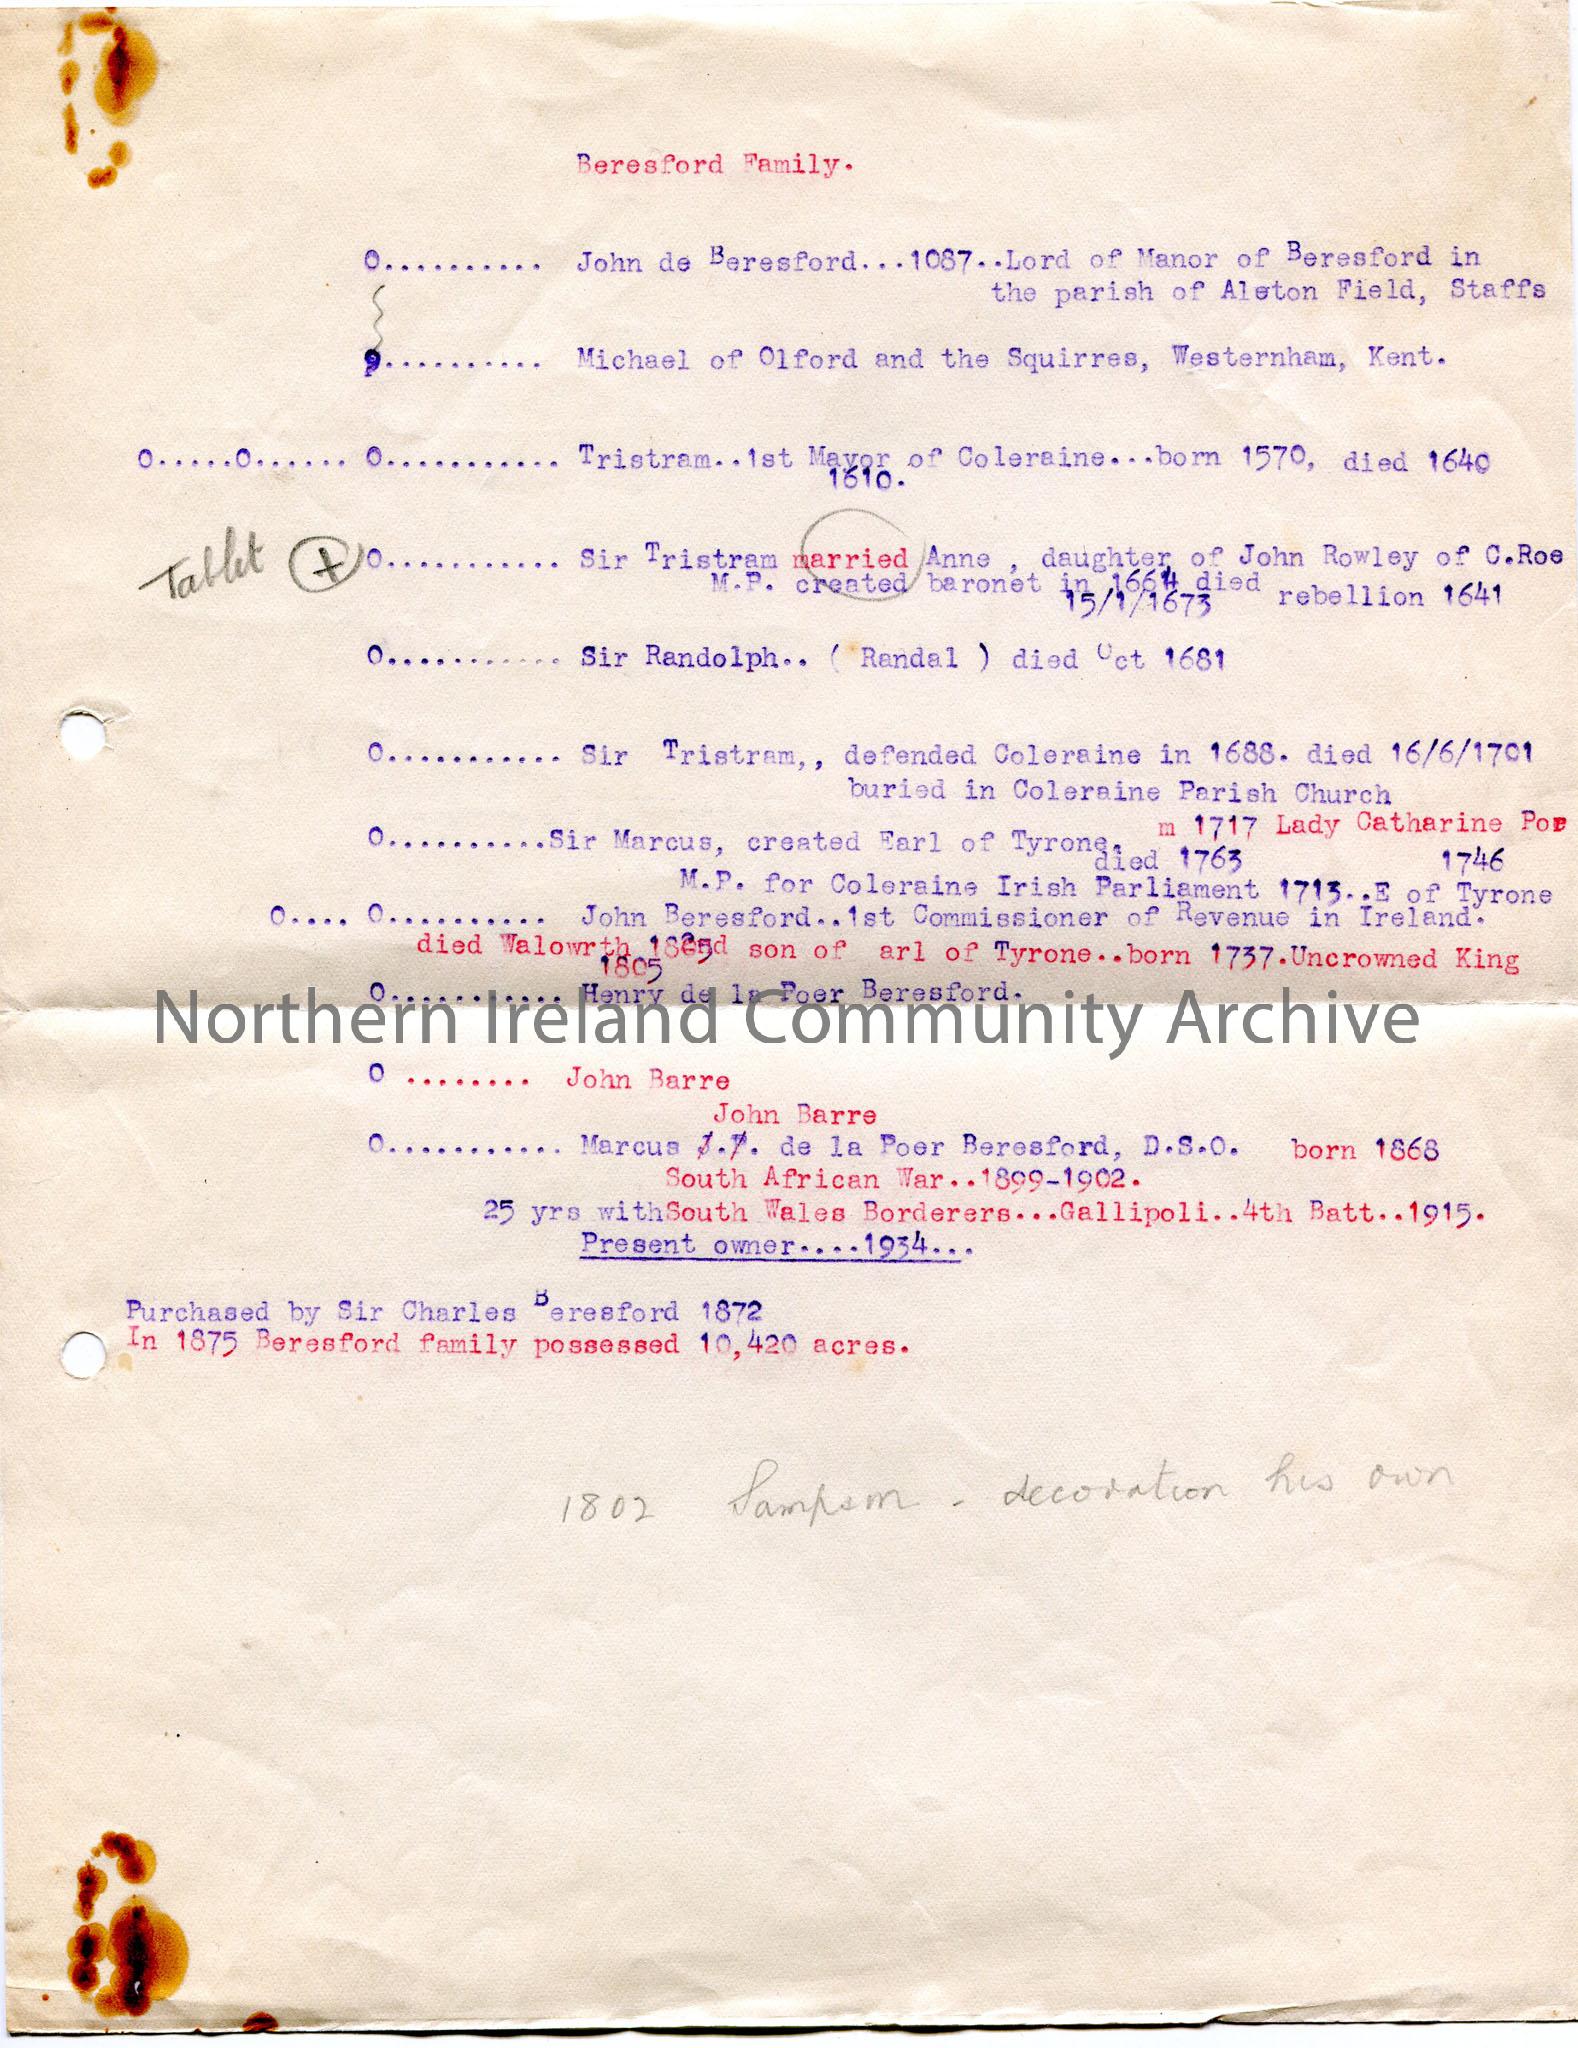 Beresford Family.
O.......... John de Beresford...1087..Lord of Manor of Beresford in
the parish of Alston Field, Staffs
.......... Michael of Olford and the Squirres, Westernham, Kent.
O.....O...... O........... Tristram..1st Mayor of Coleraine...born 1570, died 1640
1610.
Tablet + O........... Sir Tristram married Anne , daughter of John Rowley of C.Roe
M.P. created baronet in 1664 died rebellion 1641
15/1/1673
O........... Sir Randolph.. ( Randal ) died Oct 1681
O........... Sir Tristram,, defended Coleraine in 1688. died 16/6/1701
buried in Coleraine Parish Church
m 1717 Lady Catharine Poe
O...........Sir Marcus, created Earl of Tyrone.
died 1763 1746
M.P. for Coleraine Irish Parliament 1713..E of Tyrone
O.... O.......... John Beresford..1st Commissioner of Revenue in Ireland.
died Walowrth son of arl of Tyrone..born 1737.Uncrowned King
1805
O........... Henry de la Poer Beresford.
Northern Ireland Community Archive
O ........ John Barre
John Barre
O........... Marcus J.P. de la Poer Beresford, D.S.O. born 1868
South African War..1899-1902.
25 yrs withSouth Wales Borderers...Gallipoli..4th Batt..1915.
Present owner....1934...
Purchased by Sir Charles Beresford 1872
In 1875 Beresford family possessed 10,420 acres.
1802 Sampson - decoration his own